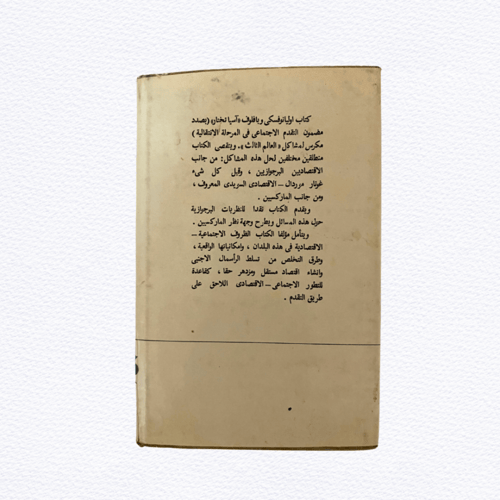 كتاب اوليانوفسكي وبافلوف «آسيا تختار» (بصدد
مضمون التقدم الاجتماعى فى المرحلة الانتقالية)
مكرس لمشاكل «العالم الثالث». ويتقصى الكتاب
منطلقين مختلفين لحل هذه المشاكل: من جانب
الاقتصاديين البرجوازيين، وقبل كل شىء
غونار ميردال – الاقتصادى السويدى المعروف،
ومن جانب الماركسيين.
ويقدم الكتاب نقدا للنظريات البرجوازية
حول هذه المسائل ويطرح وجهة نظر الماركسيين.
ويتأمل مؤلفا الكتاب الظروف الاجتماعية –
الاقتصادية فى هذه البلدان، وامكانياتها الواقعية،
وطرق التخلص من تسلط الرأسمال الاجنبى
وانشاء اقتصاد مستقل ومزدهر حقا، كقاعدة
للتطور الاجتماعى – الاقتصادى اللاحق على
طريق التقدم.